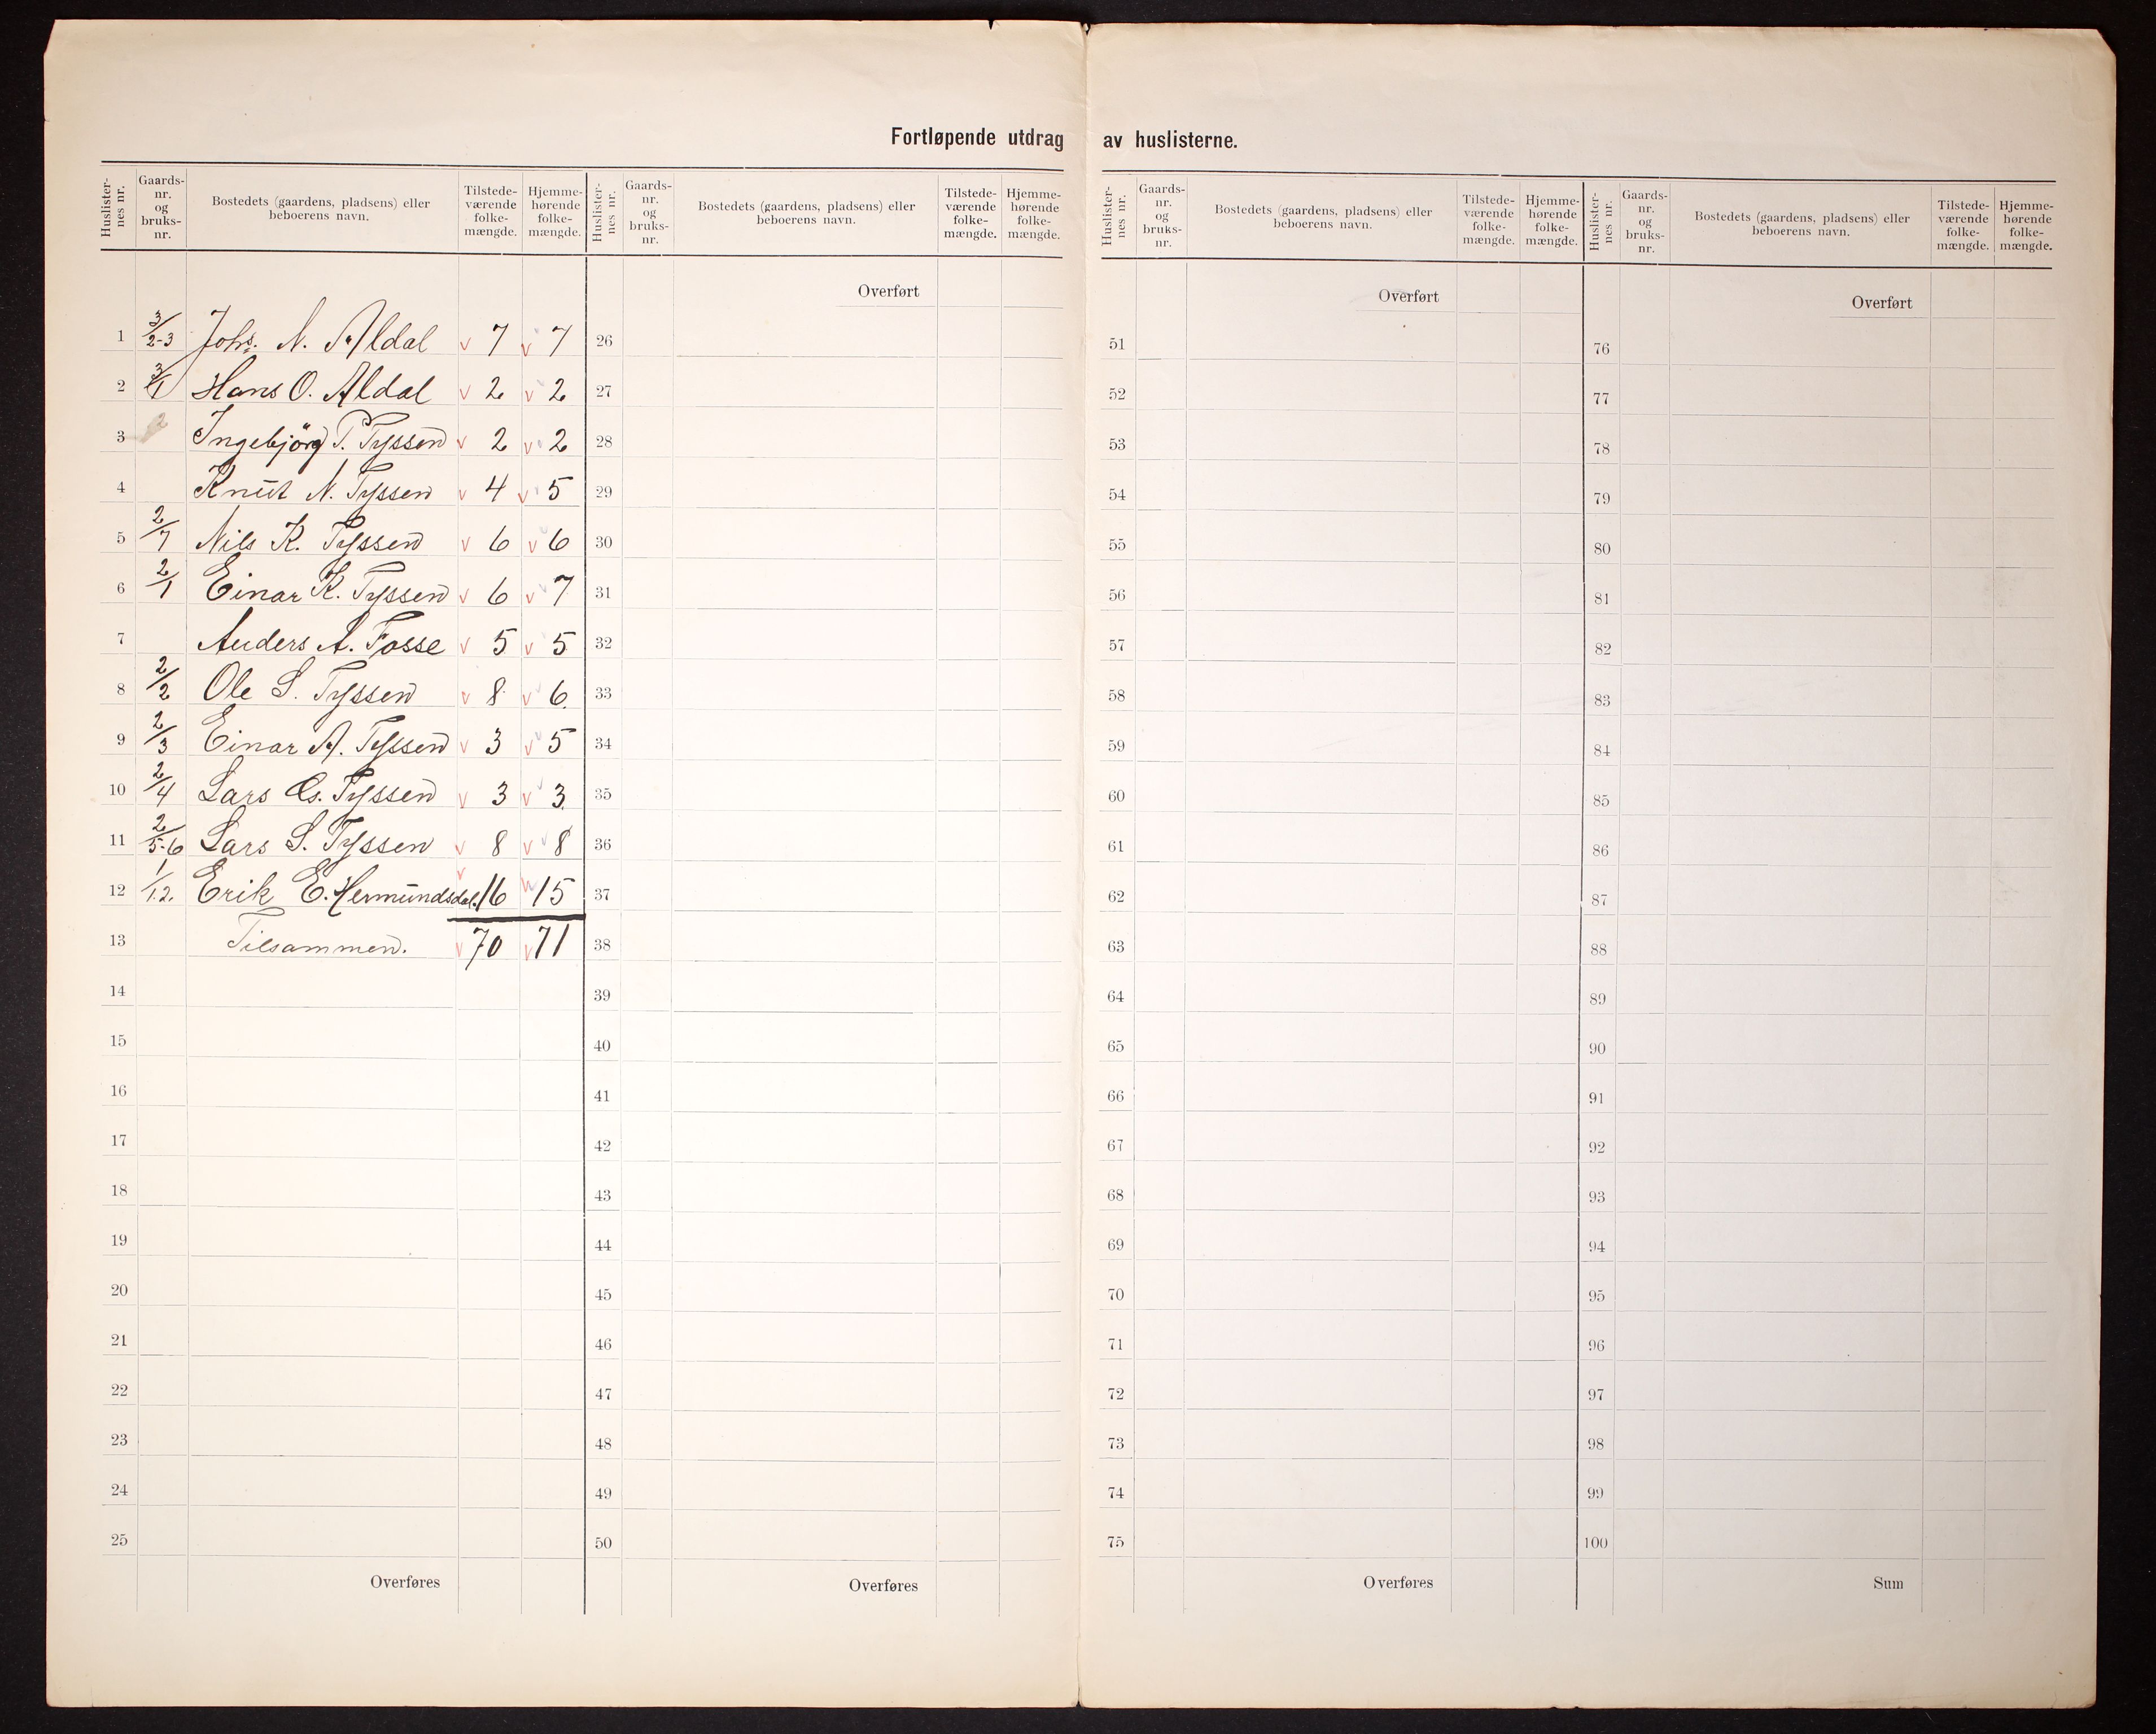 Fortløpende utdrag av huslisterne.
Huslisternes nr. Gaards-nr. og bruks-nr. Bostedets (gaardens, pladsens) eller beboerens navn. Tilstede-værende folke-mængde. Hjemme-hørende folke-mængde.
1 3/2-3 Johs. N. Aldal 7 7
2 3/1 Hans O. Aldal 2 2
3 Ingebjörg P. Tyssen 2 2
4 Knut N. Tyssen 4 5
5 2/7 Nils K. Tyssen 6 6
6 2/1 Einar K. Tyssen 6 7
7 Anders A. Fosse 5 5
8 2/2 Ole S. Tyssen 8 6.
9 2/3 Einar A. Tyssen 3 5
10 2/4 Lars Tyssen 3 3.
11 2/5-6 Lars S. Tyssen 8 8
12 1/1.2. Erik E. Hermundsdal. 16 15
13 Tilsammen. 70 71
14
15
16
17
18
19
20
21
22
23
24
25
Overføres
Huslisternes nr. Gaards-nr. og bruks-nr. Bostedets (gaardens, pladsens) eller beboerens navn. Tilstede-værende folke-mængde. Hjemme-hørende folke-mængde.
Overført
26
27
28
29
30
31
32
33
34
35
36
37
38
39
40
41
42
43
44
45
46
47
48
49
50
Overføres
Huslisternes nr. Gaards-nr. og bruks-nr. Bostedets (gaardens, pladsens) eller beboerens navn. Tilstede-værende folke-mængde. Hjemme-hørende folke-mængde.
Overført
51
52
53
54
55
56
57
58
59
60
61
62
63
64
65
66
67
68
69
70
71
72
73
74
75
Overføres
Huslisternes nr. Gaards-nr. og bruks-nr. Bostedets (gaardens, pladsens) eller beboerens navn. Tilstede-værende folke-mængde. Hjemme-hørende folke-mængde.
Overført
76
77
78
79
80
81
82
83
84
85
86
87
88
89
90
91
92
93
94
95
96
97
98
99
100
Sum